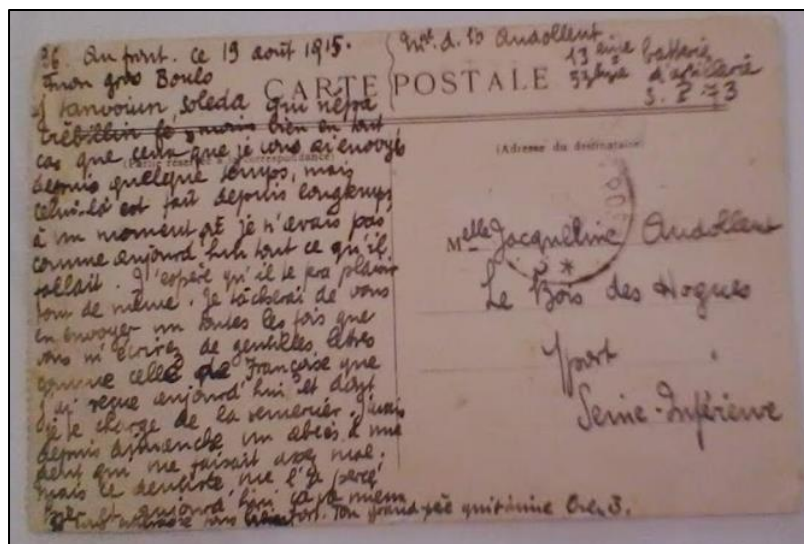 36. Au front. Ce 19 août 1915.
Mon gros Boulo
J' tanvoiun soleda qui népa
trèbillin fé, moins bien en tout
cas que ceux que je vous ai envoyé
depuis quelque temps, mais
celui-là est fait depuis longtemps
à un moment où je n'avais pas
comme aujourd'hui tout ce qu'il
fallait. J'espère qu'il te fera plaisir
tout de même. Je tâcherai de vous
en envoyer un toutes les fois que
vous m'écrirez de gentilles lettres
comme celle de Françoise que
j'ai reçue aujourd'hui et dont
je te charge de la remercier. J'avais
depuis dimanche un abcès à une
dent qui me faisait assez mal.
mais le dentiste me l'a percé
hier et aujourd'hui ça va mieux
Ton grand pèē quitaime
CARTE POSTALE
(Partie réservée à la correspondance)
(Adresse du destinataire)
Audollent
13ème batterie
d'artillerie
S. P. 73
Melle Jacqueline Audollent
Le Bois des Hogues
Yport
Seine-Inférieure